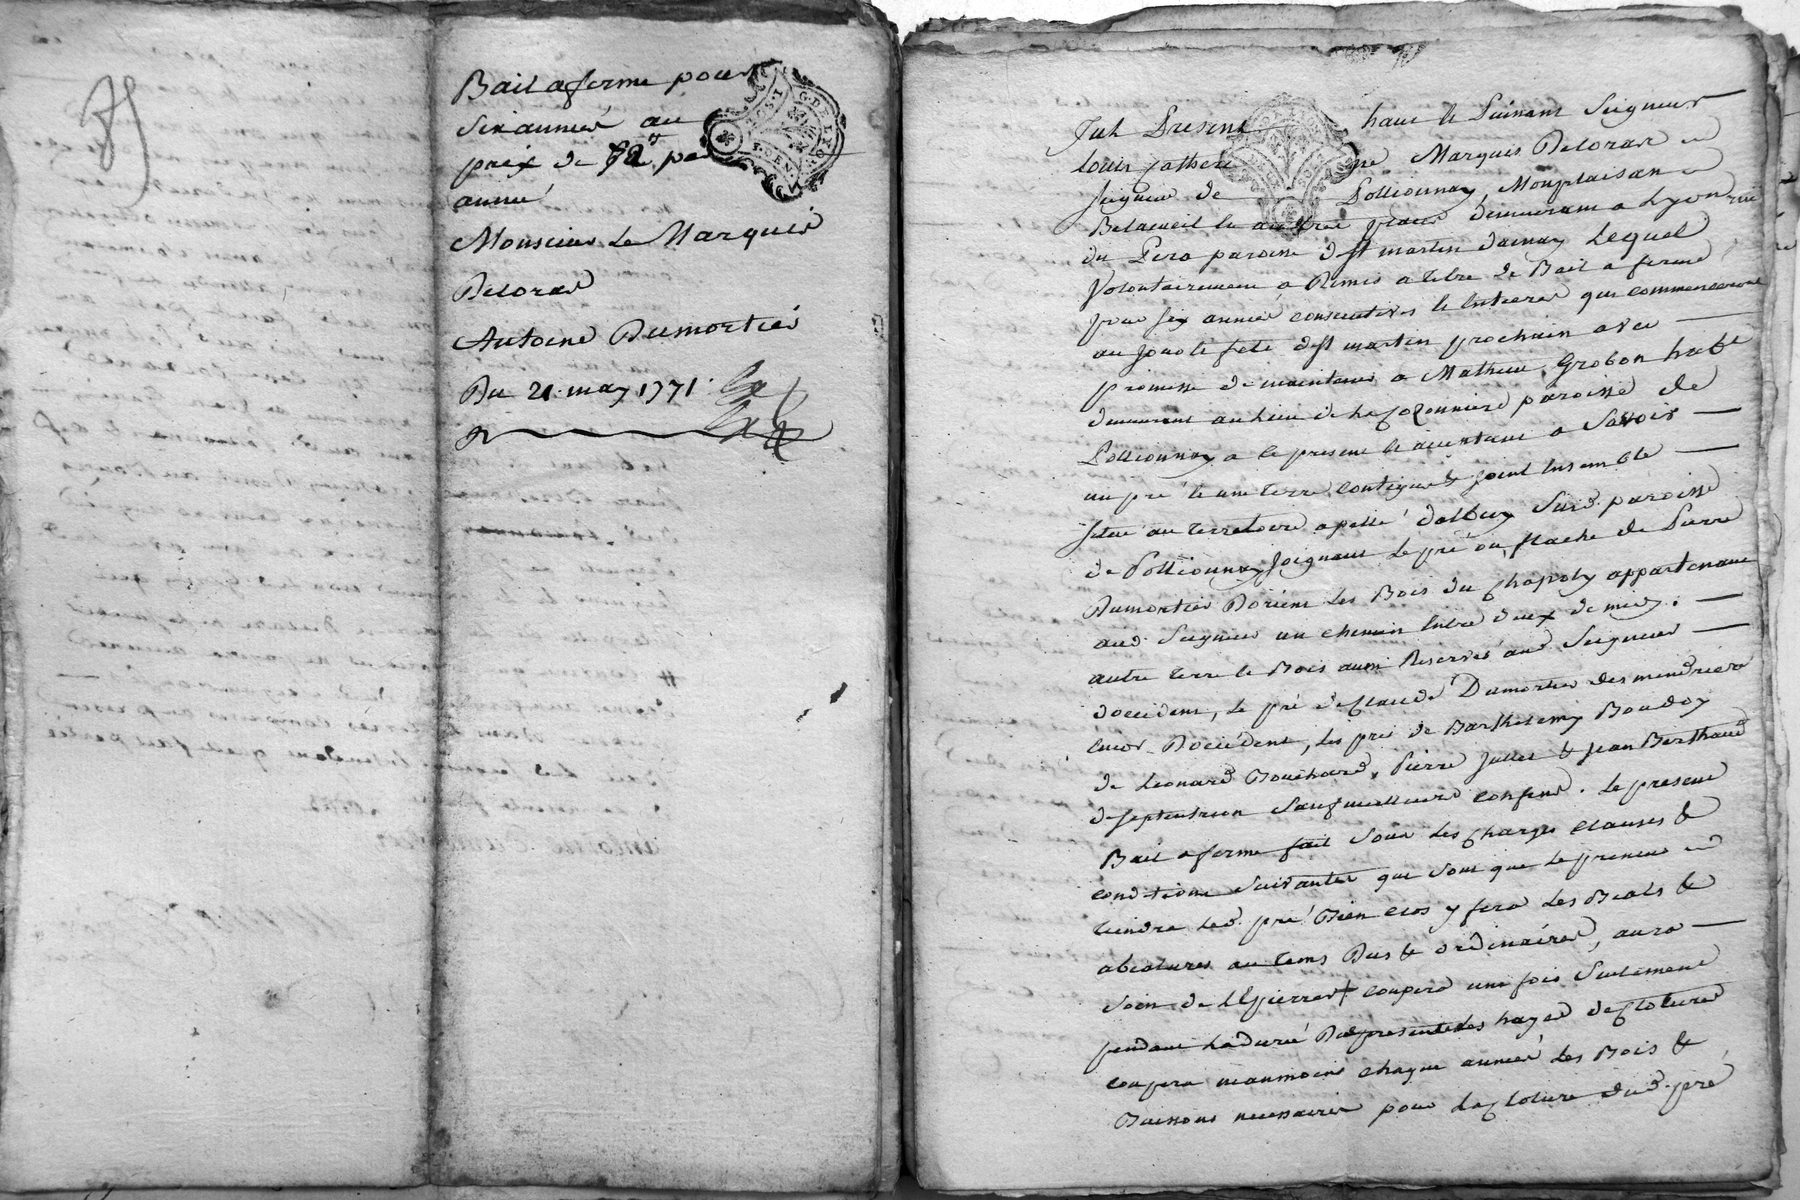 Bail a ferme pour
six année au
prix de 72 ₶ par
année
Monsieur Le Marquis
Deloras
Antoine Dumortier
Du 21 may 1771
G. DE LYON
fut Present haut & Puissant Seigneur
Louis Catherine Marquis Deloras
seigneur de Pollionnay, Monplaisan
Belacueil & autres places demeurant a Lyon rue
du Pera paroisse de st martin dainay Lequel
Volontairement a Remis a titre de Bail a ferme
pour six année consecutives & Entieres qui commenceront
au jour & fete de st martin prochain avec
promesse de maintenir a Mathieu Grobon habt
demeurant au lieu de la paroisse de
Pollionnay a ce present & acceptant a Savoir
un pré & une terre contigue & joint Ensemble
situé au territoire apellé dalbuy Susd. paroisse
de Pollionnay joignant Le pré ou flache de Pierre
Dumortier Dorient Les Bois du Chapoly appartenant
aud Seigneur un chemin Entre deux de midy.
autre terre & Bois aussi Reservés aud Seigneur
doccident, Le pré de Claude Dumortier des mendrieres
encor Doccident, Les prés de Barthelemy Boudoy
de Leonard Bouchard, Pierre Jullet & Jean Berthaud
de septentrion Sauf meilleurs confins. Le present
Bail a ferme fait Sous Les Charges clauses &
conditions Suivantes qui sont que Le preneur
tiendra Led. pré Bien clos y fera Les Beals &
abeatures au tems Dus & ordinaires, aura
Soin de L'Epierrer + coupera une fois Seulement
pendant La durée Des presentes Les hayes de Cloture
coupera neanmoins chaque année Les Bois &
Buissons necessaires pour La Cloture dud. pré